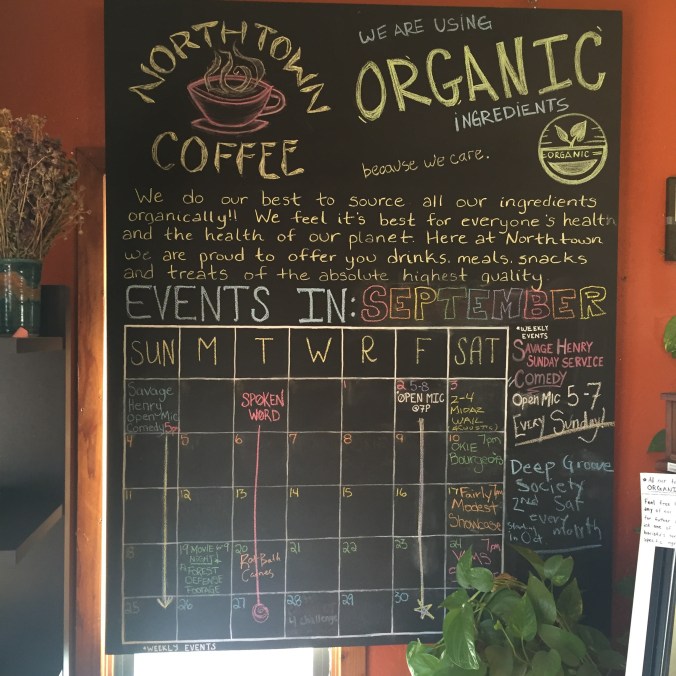 NORTHTOWN
COFFEE
WE ARE USING
ORGANIC
INGREDIENTS
because we care.
ORGANIC
We do our best to source all our ingredients
organically!! We feel it's best for everyone's health
and the health of our planet. Here at Northtown
we are proud to offer you drinks, meals, snacks
and treats of the absolute highest quality.
EVENTS IN: SEPTEMBER
SUN M T W R F SAT
Savage
Henry
Open-Mic
Comedy 5pm
SPOKEN
WORD
1
2 5-8
OPEN MIC
@7P
3
2-4
MIDAZ
WAIL
(ACOUSTIC)
4 5 6 7 8 9
10 7pm
OKIE
Bourgeois
11 12 13 14 15 16
17 Fairly
Modest
Showcase
18
19 MOVIE
NIGHT
FOREST
DEFENSE
FOOTAGE
20
21 22 23
24 7pm
25 26 27 28
challenge
29 30
*WEEKLY EVENTS
*WEEKLY
EVENTS
SAVAGE HENRY
SUNDAY SERVICE
COMEDY
OPEN MIC 5-7
EVERY Sunday!
Deep Groove
Society
2nd Sat
every month
in Oct
ORGANIC
Feel free